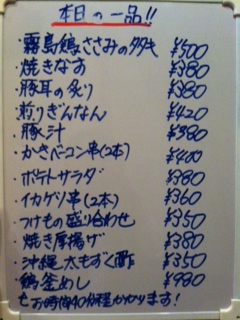 本日の一品!!
・霧島鶏ささみのタタキ ¥500
・焼きなす ¥380
・豚耳の炙り ¥380
・煎りぎんなん ¥420
・豚汁 ¥380
・かさベーコン串(2本) ¥400
・ポテトサラダ ¥380
・イカゲソ串(2本) ¥360
・つけもの盛り合わせ ¥350
・焼き厚揚げ ¥380
・沖縄太もずく酢 ¥350
・鶏釜めし ¥980
お時間40分程かかります!